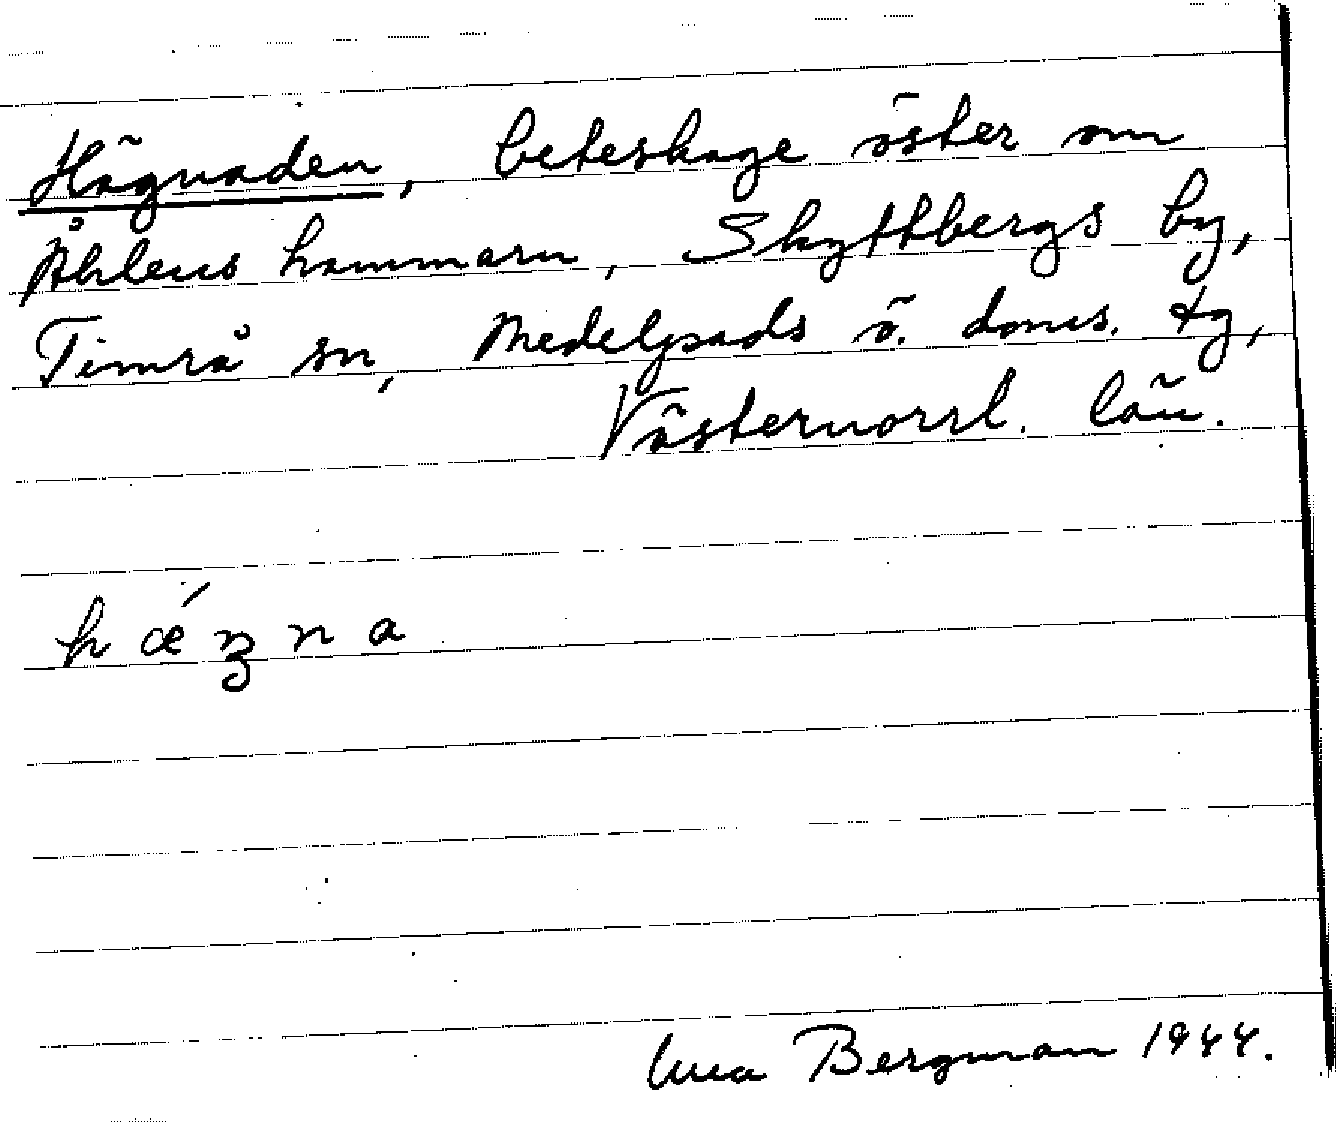 Hägnaden, beteshage öster om
Åhlens hammarn, Skyttbergs by,
Timrå sn, Medelpads ö. doms. tg,
Västernorrl. län.
h ǽ ŋ n a
Bergman 1944.